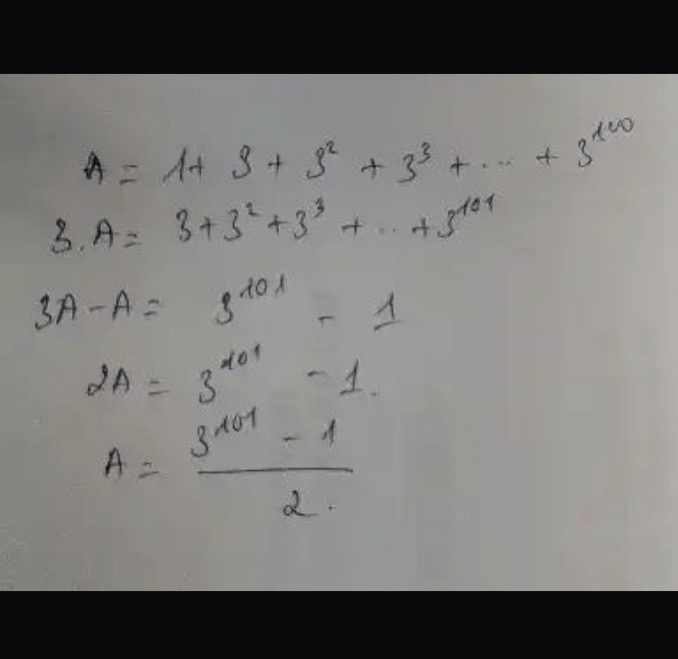 A = 1 + 3 + 3² + 3³ + ... + 3¹⁰⁰
3.A = 3 + 3² + 3³ + .. + 3¹⁰¹
3A - A = 3¹⁰¹ - 1
2A = 3¹⁰¹ - 1.
A = (3¹⁰¹ - 1) / 2.